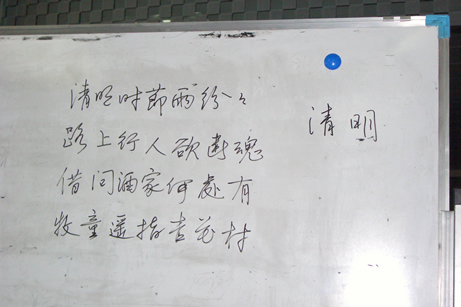 清明
清明时節雨紛々
路上行人欲断魂
借问酒家何處有
牧童遥指杏花村